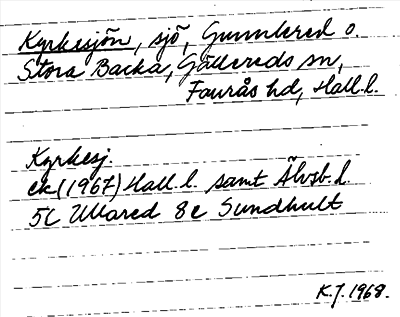 Kyrkesjön, sjö, Gunnlered o.
Stora Backa, Gällereds sn,
Faurås hd, Hall.l.
Kyrkesj.
ek (1967) Hall.l. samt Älvsb.l.
5C Ullared 8e Sundhult
K.J. 1968.